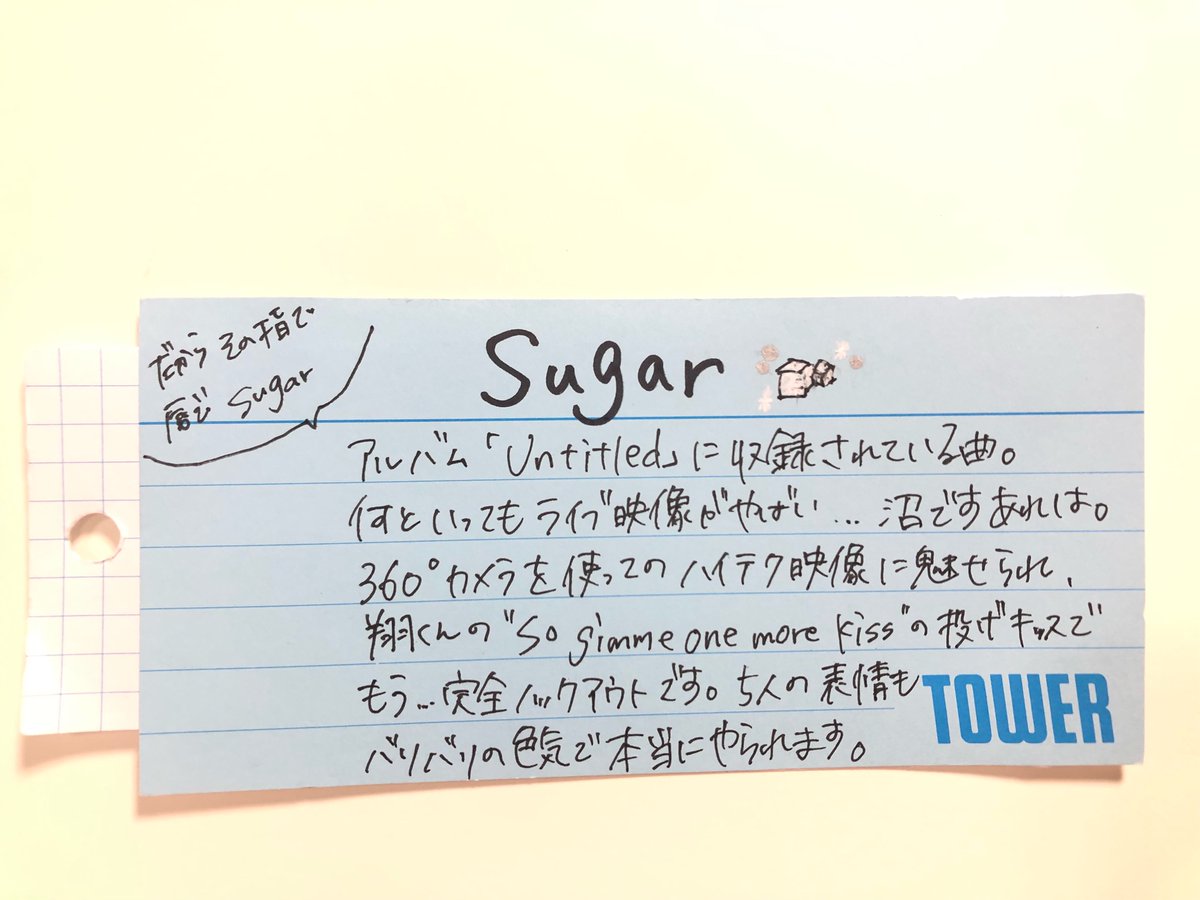 だからその指で
唇で sugar
Sugar
アルバム「Untitled」に収録されている曲。
何といってもライブ映像がやばい…沼ですあれは。
360°カメラを使ってのハイテク映像に魅せられ、
翔くんの"So gimme one more kiss"の投げキッスで
もう…完全ノックアウトです。5人の表情も
バリバリの色気で本当にやられます。
TOWER